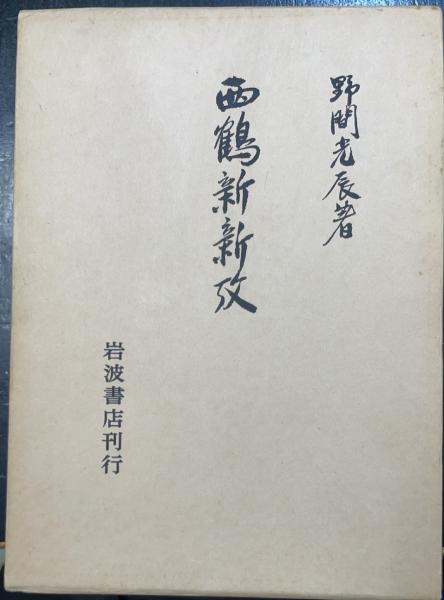 野間光辰著
西鶴新新攷
岩波書店刊行